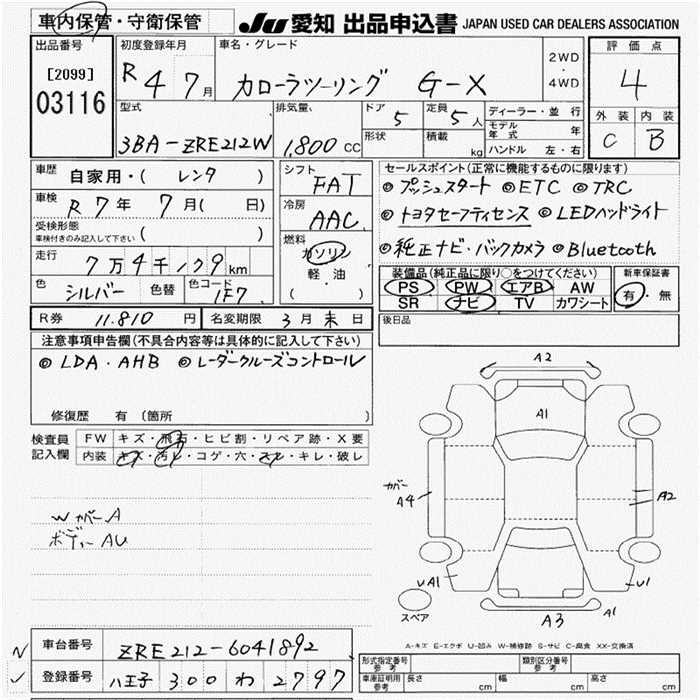 車内保管・守衛保管
JU 愛知 出品申込書 JAPAN USED CAR DEALERS ASSOCIATION
出品番号
[2099]
03116
初度登録年月
R 4 7月
車名・グレード
カローラツーリング G-X
2WD
・
4WD
評価点
4
外装 内装
C B
型式
3BA-ZRE212W
排気量
1,800 CC
ドア
5
形状
定員
5人
積載
kg
ディーラー・並行
モデル年式 年
ハンドル 左・右
車歴 自家用・( レンタ )
車検 R 7年 7月( 日)
受検形態 ( )
車検付きのみ記入して下さい
走行 7万4千109km
色 シルバー 色替 色コード 1F7
シフト
FAT
冷房
AAC
燃料
ガソリン
軽油
( ・ )
セールスポイント(正常に機能するものに限ります)
◎プッシュスタート ◎ETC ◎TRC
◎トヨタセーフティセンス ◎LEDヘッドライト
◎純正ナビ・バックカメラ ◎Bluetooth
装備品(純正品に限り○をつけてください)
PS PW エアB AW
SR ナビ TV カワシート
新車保証書
有・無
後日品
R券 11,810円 名変期限 3月末日
注意事項申告欄(不具合内容等は具体的に記入して下さい)
◎LDA・AHB ◎レーダークルーズコントロール
修復歴 有 (箇所 )
検査員記入欄
FW キズ・飛石・ヒビ割・リペア跡・X要
内装 キズ・汚レ・コゲ・穴・スレ・キレ・破レ
WカバーA
ボディーAU
A2
A1
カバー
A4
A2
UA1
U1
A3
A1
スペア
A-キズ E-エクボ U-凹み W-補修跡 S-サビ C-腐食 XX-交換済
車台番号 ZRE212-6041892
登録番号 八王子 300 わ 2797
型式指定番号
参考
類別区分番号
参考
車庫証明用
参考
長さ cm 幅 cm 高さ cm